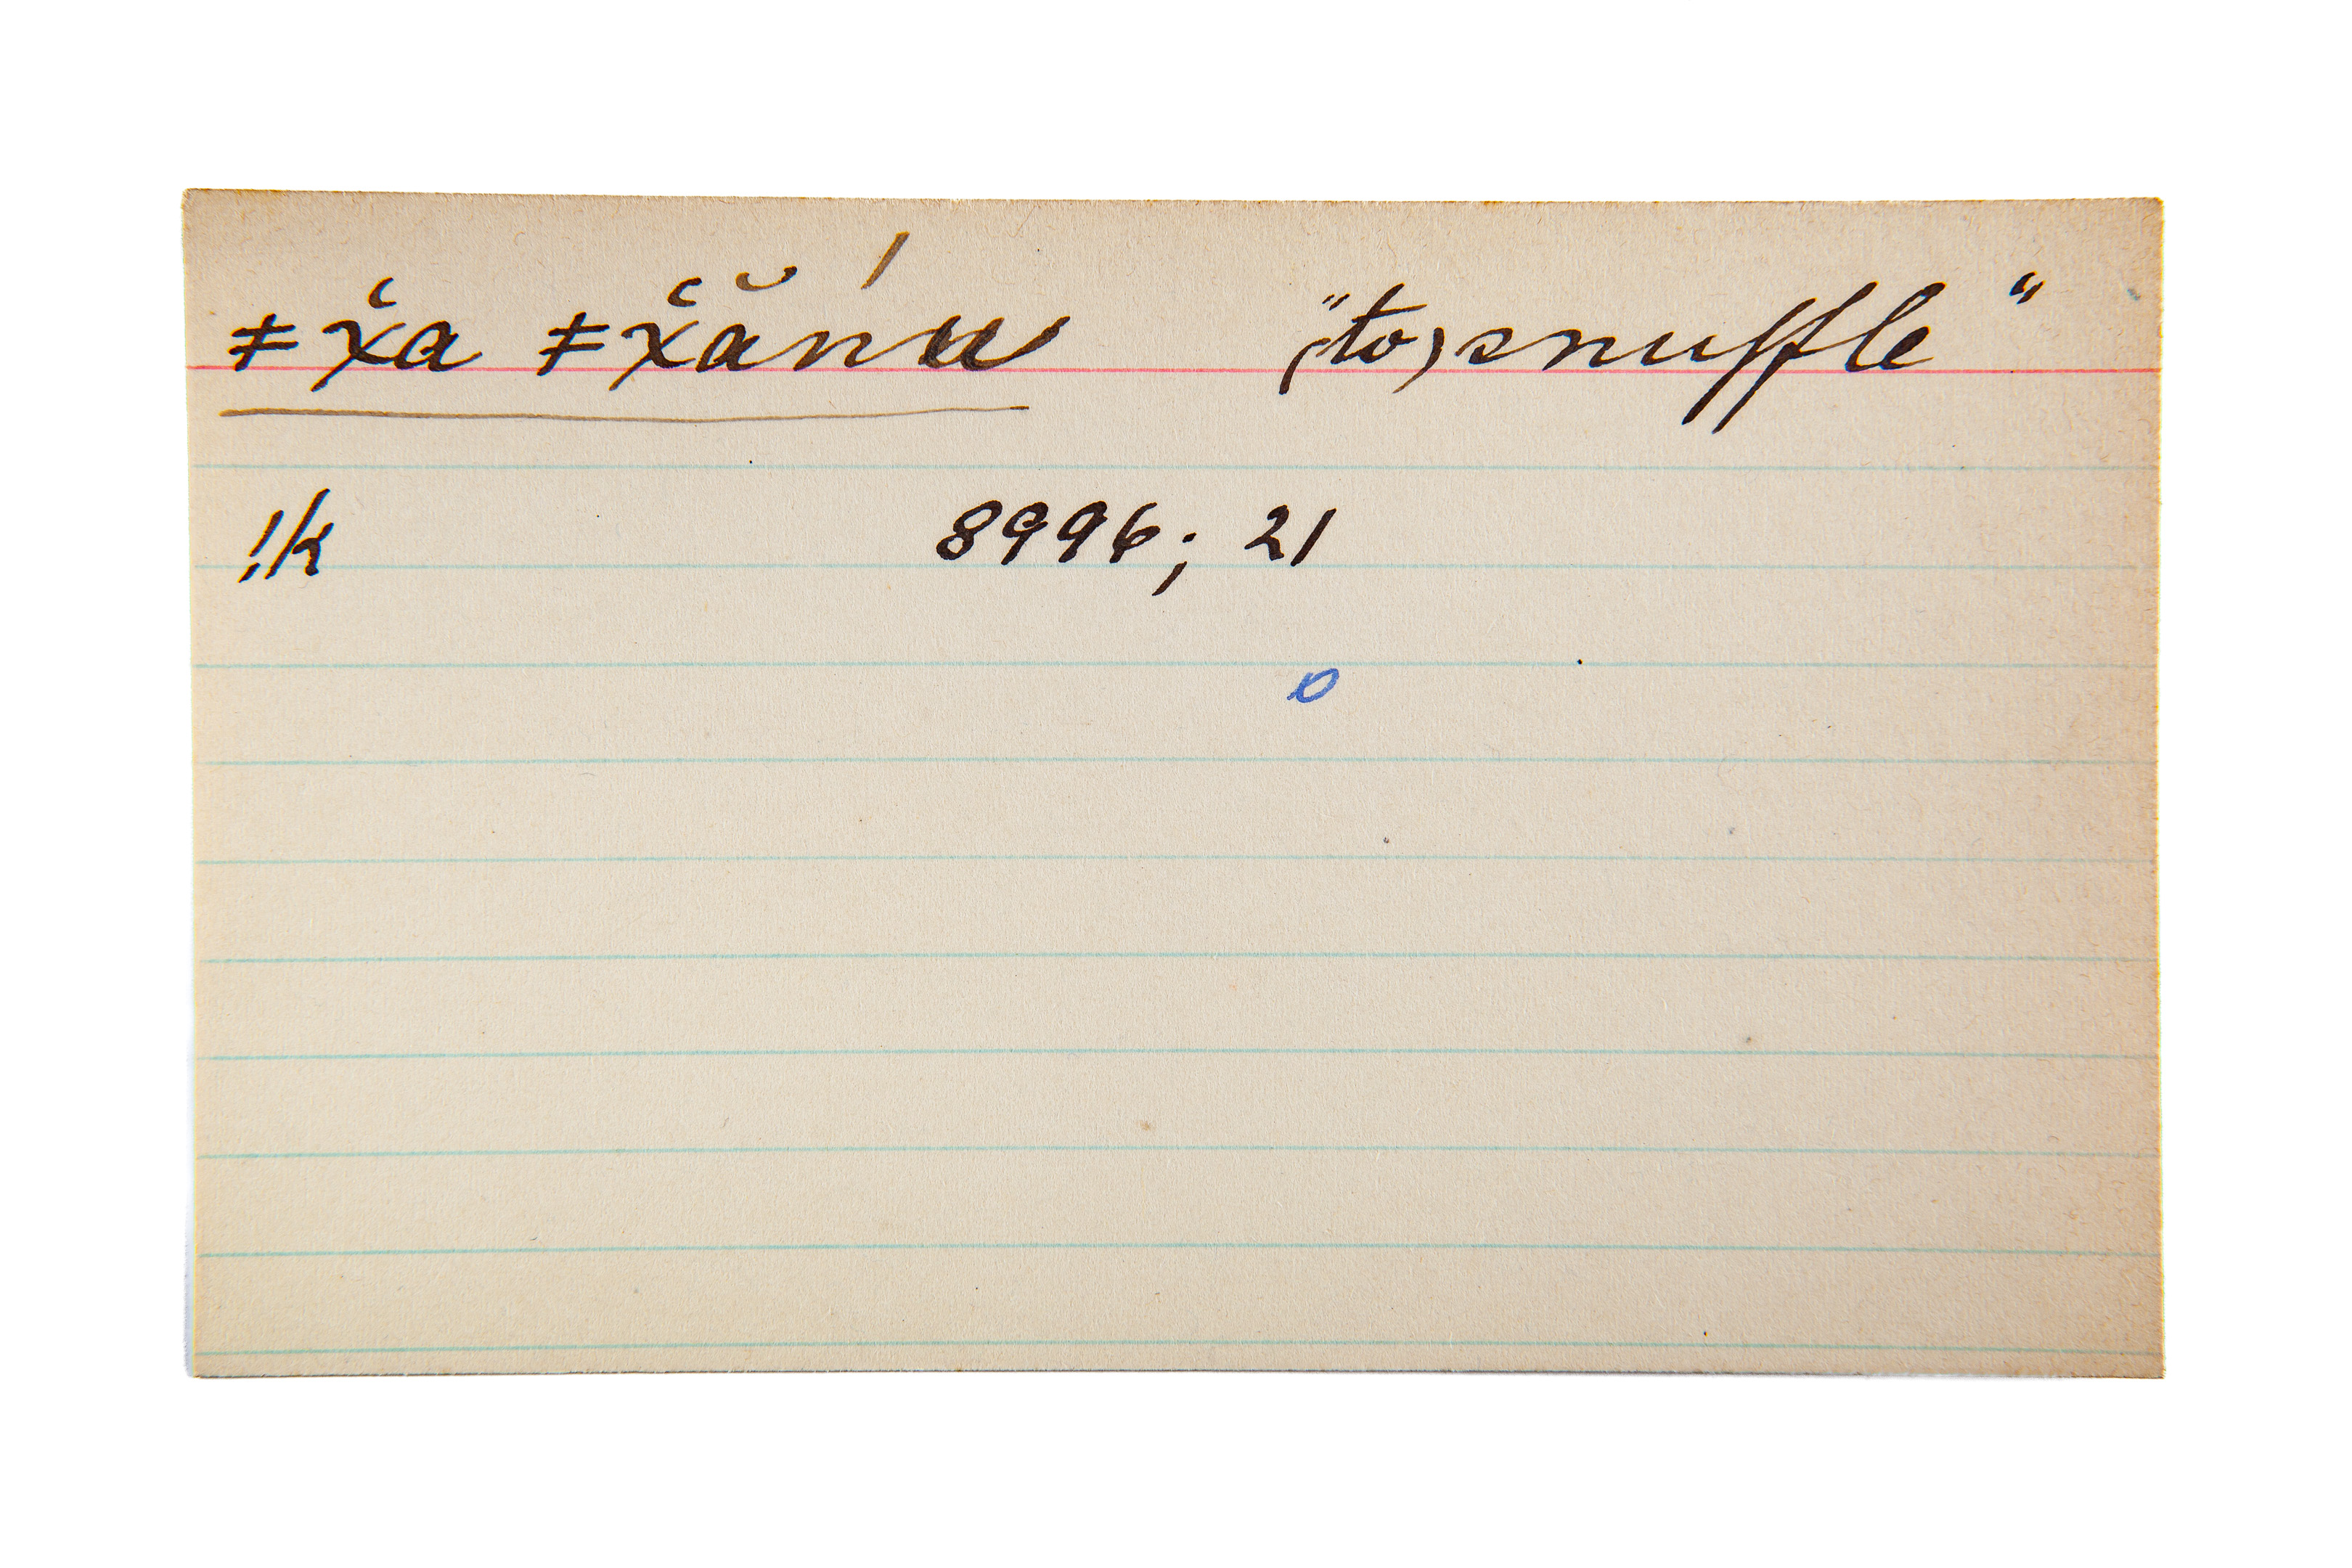 ≠χ̆a ≠χ̆ănu̍ "(to) snuffle"
!k 8996; 21
o